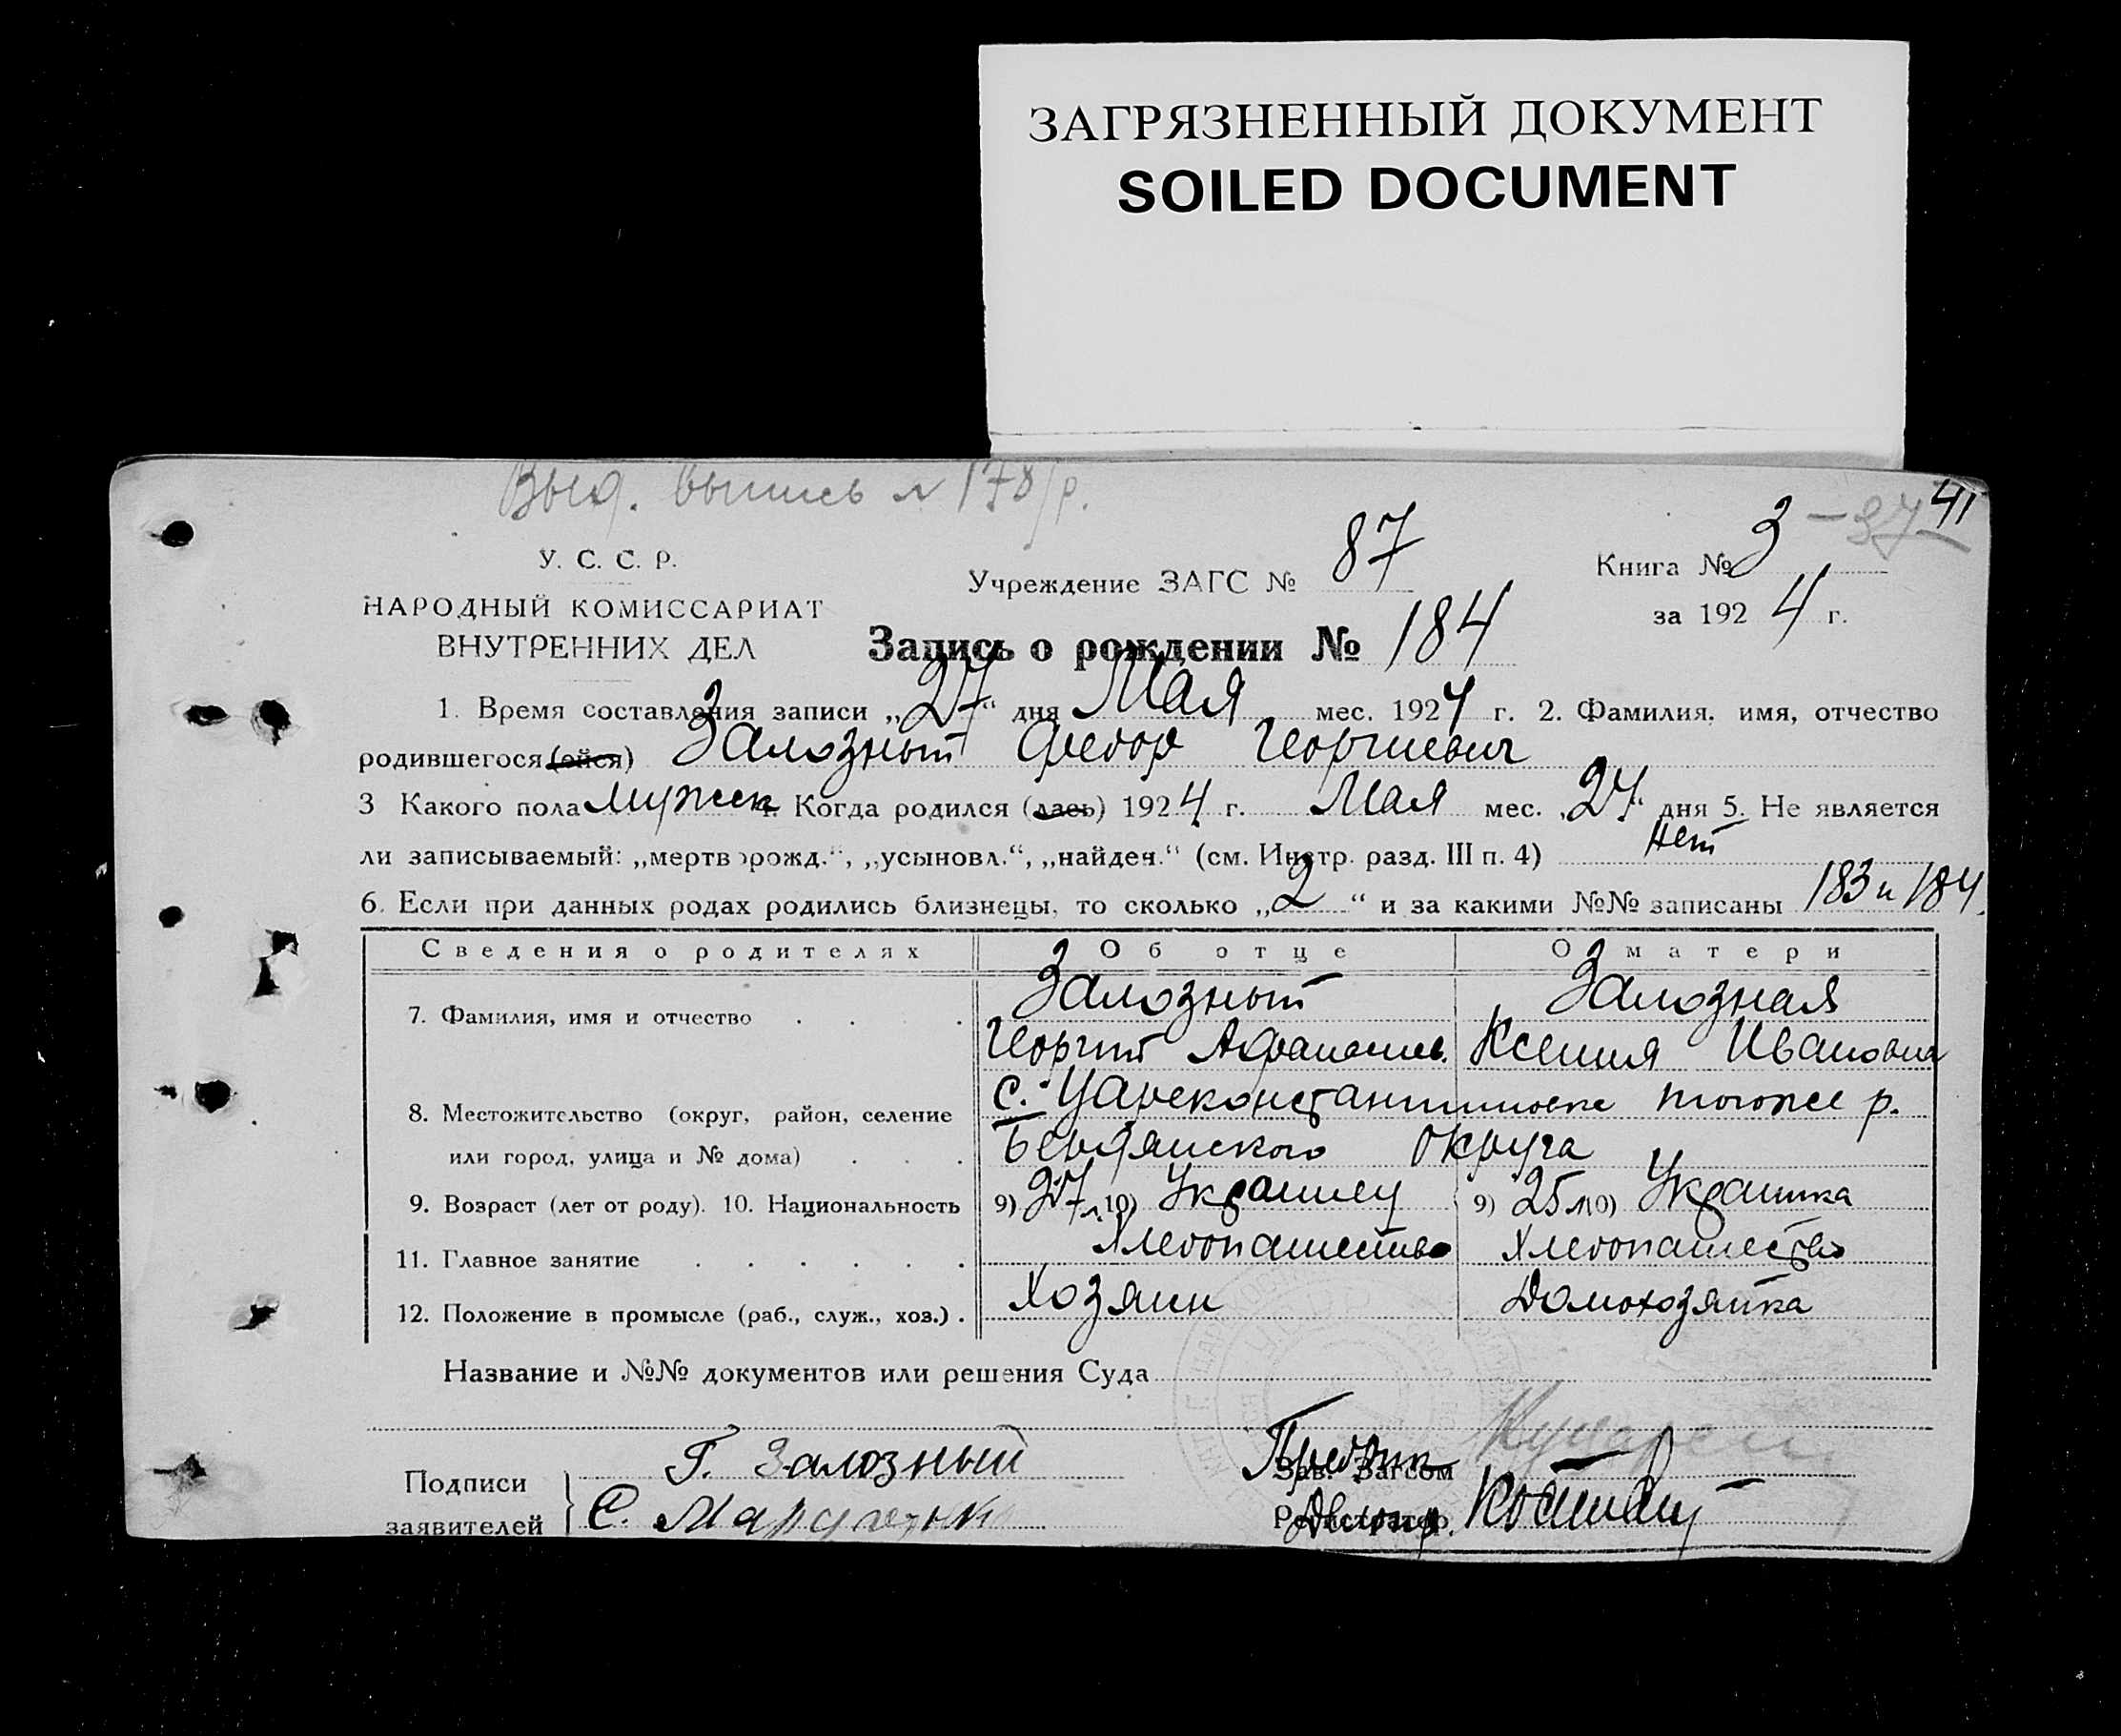 ЗАГРЯЗНЕННЫЙ ДОКУМЕНТ
SOILED DOCUMENT
Выд. выпись № 178/р.
41
У. С. С. Р.
НАРОДНЫЙ КОМИССАРИАТ
ВНУТРЕННИХ ДЕЛ
Учреждение ЗАГС № 87
Книга № 3 – 37
за 1924 г.
Запись о рождении № 184
1. Время составления записи „27“ дня Мая мес. 1924 г. 2. Фамилия, имя, отчество
родившегося (ойся) Залозный Федор Георгиевич
3 Какого пола мужск 4. Когда родился (лась) 1924 г. Мая мес. „24“ дня 5. Не является
ли записываемый: „мертворожд.“, „усыновл.“, „найден.“ (см. Инстр. разд. III п. 4) Нет
6. Если при данных родах родились близнецы, то сколько „2“ и за какими №№ записаны 183 и 184.
Сведения о родителях Об отце О матери
7. Фамилия, имя и отчество Залозный Залозная
Георгий Афанасиев. Ксения Ивановна
8. Местожительство (округ, район, селение с. Цареконстантиновке тогоже р.
или город, улица и № дома) Бердянского округа
9. Возраст (лет от роду). 10. Национальность 9) 27 л. 10) Украинец 9) 25 л 10) Украинка
11. Главное занятие Хлебопашество Хлебопашество
12. Положение в промысле (раб., служ., хоз.) Хозяин Домохозяйка
Название и №№ документов или решения Суда
Подписи
заявителей
Г. Залозный
С.
Зав. Загсом
Регистратор